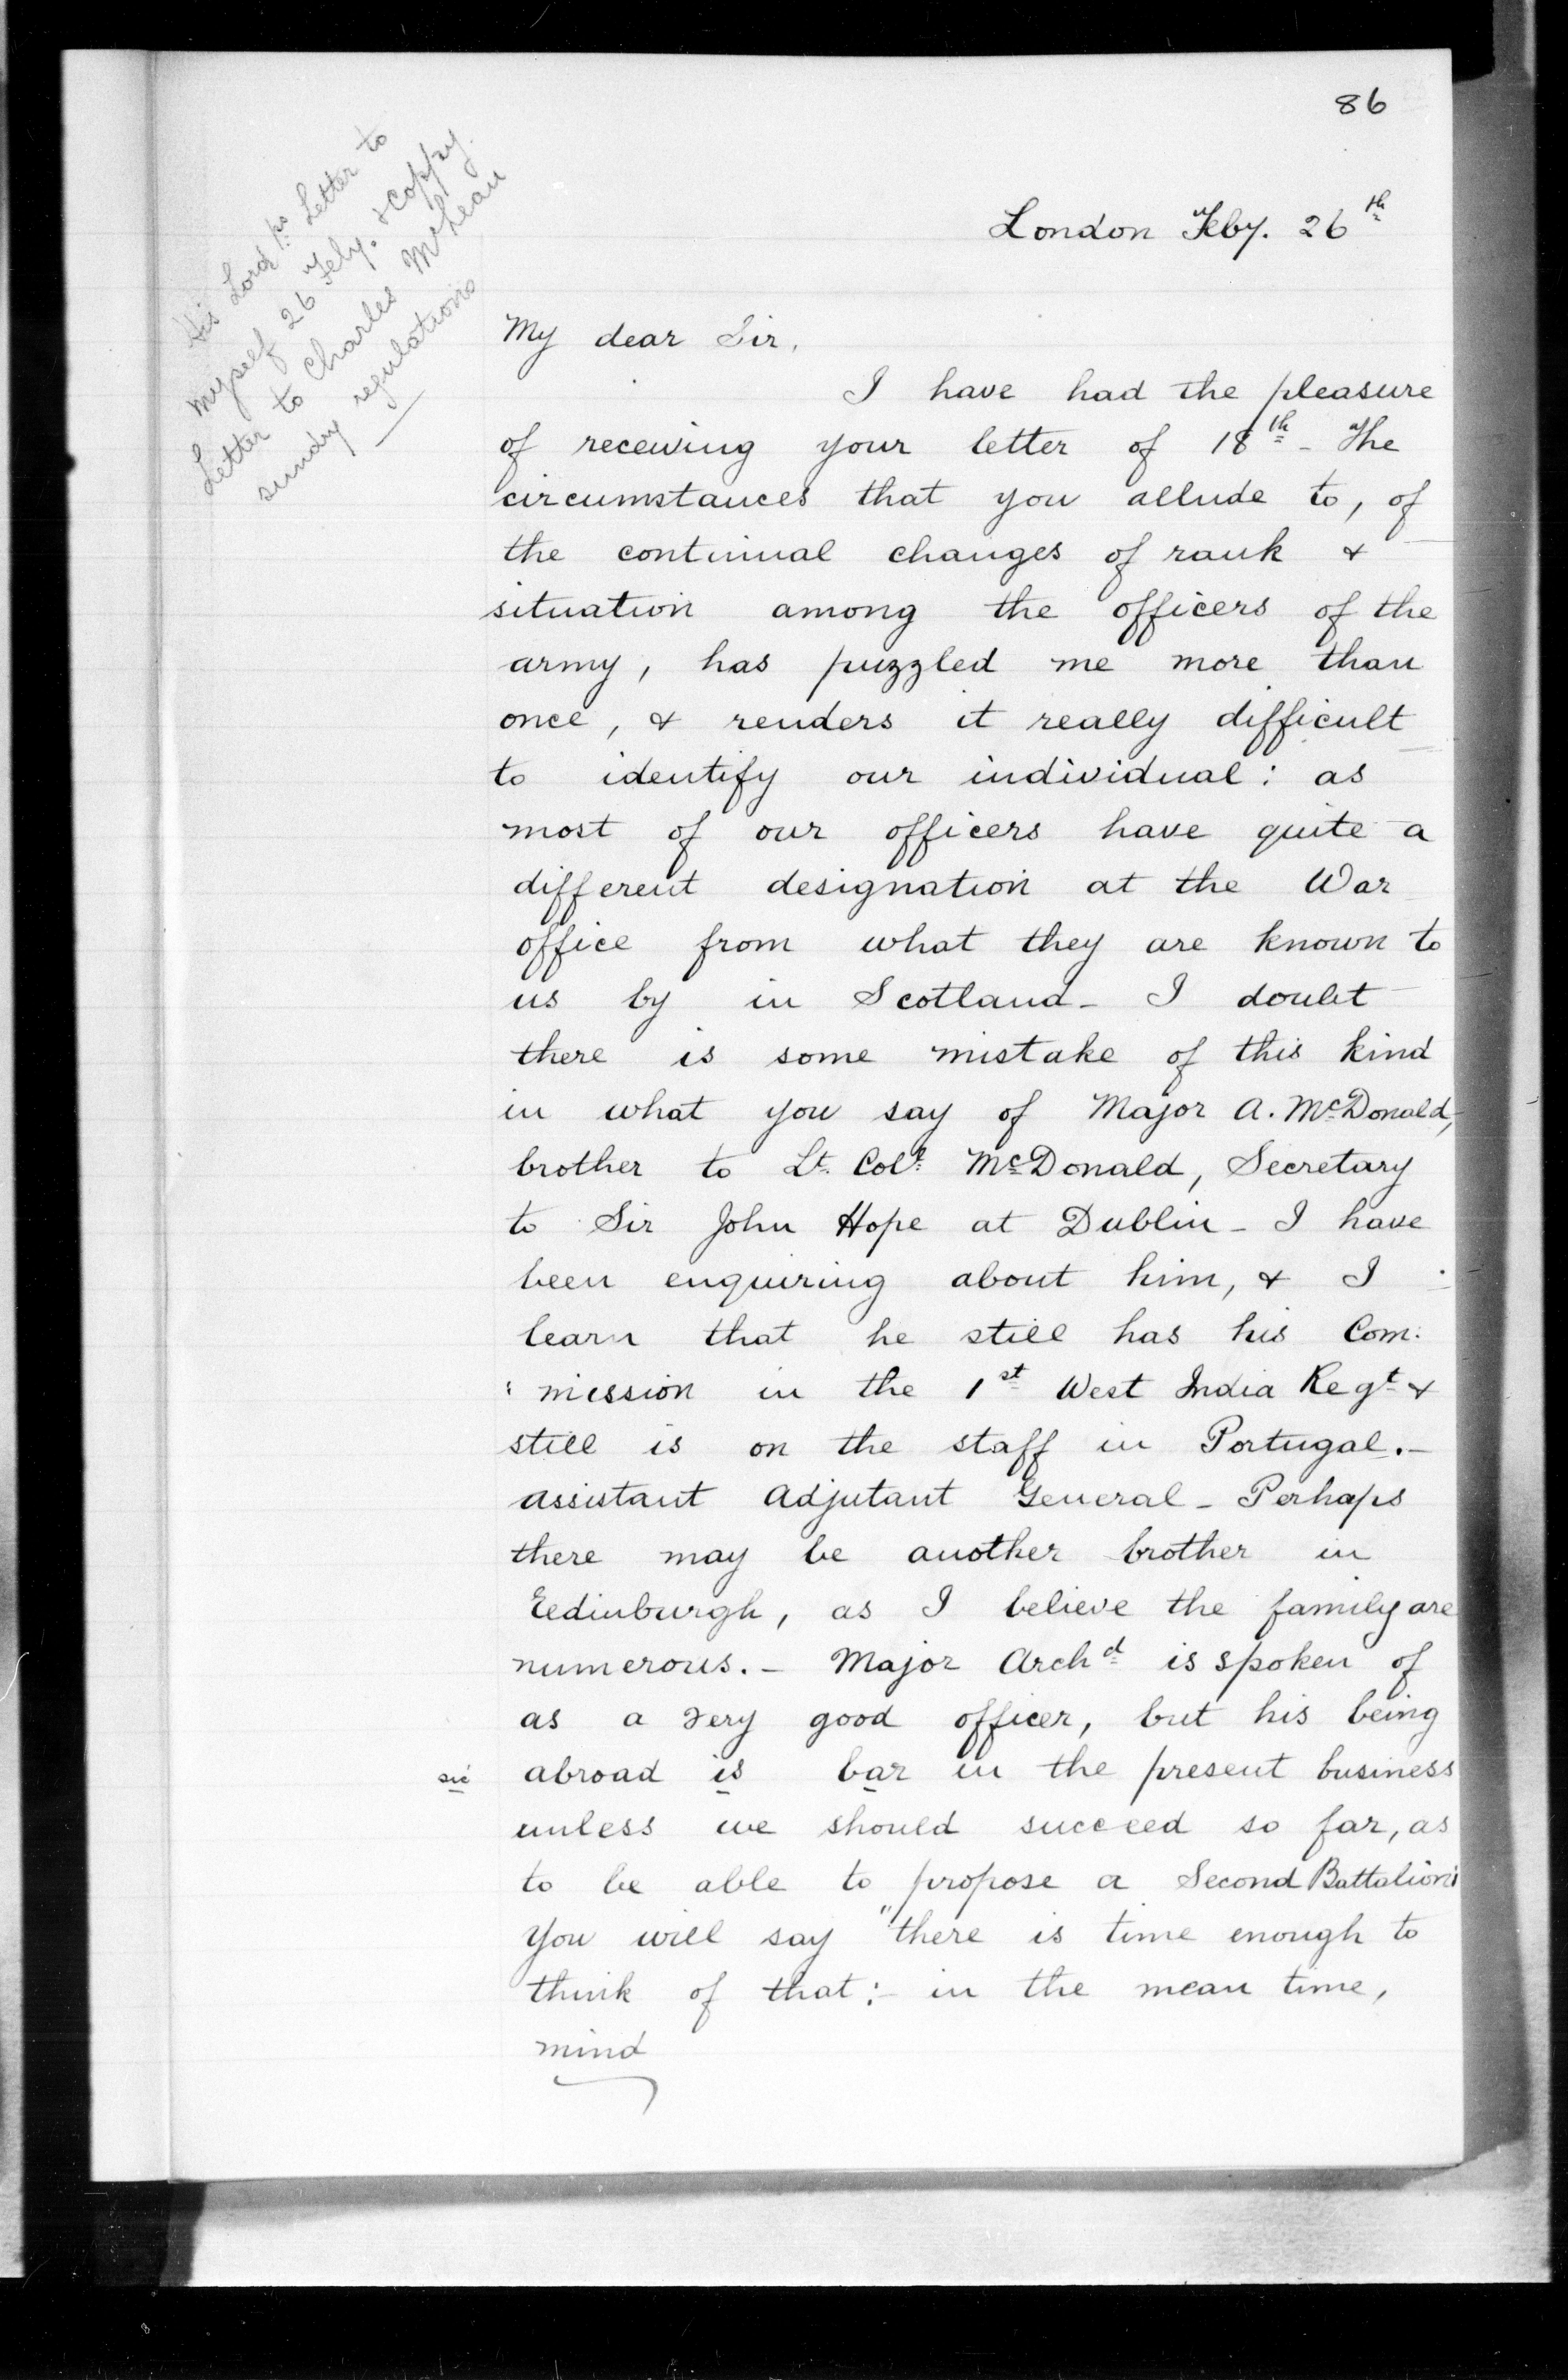 86
His Lordps Letter to
myself 26 Feby. & Coppy
Letter to Charles McLean
sundry regulations
London Feby. 26th
My dear Sir,
I have had the pleasure
of receiving your letter of 18th - The
circumstances that you allude to, of
the continual changes of rank &
situation among the officers of the
army, has puzzled me more than
once, & renders it really difficult
to identify our individual: as
most of our officers have quite a
different designation at the War
office from what they are known to
us by in Scotland - I doubt
there is some mistake of this kind
in what you say of Major A. McDonald,
brother to Lt. Coll. McDonald, Secretary
to Sir John Hope at Dublin - I have
been enquiring about him, & I
learn that he still has his Com:
:mission in the 1st West India Regt &
still is on the staff in Portugal. -
assistant Adjutant General - Perhaps
there may be another brother in
Eedinburgh, as I believe the family are
numerous. - Major Archd is spoken of
as a very good officer, but his being
sic abroad is bar in the present business
unless we should succeed so far, as
to be able to propose a Second Battalion:
You will say "there is time enough to
think of that: - in the mean time,
mind